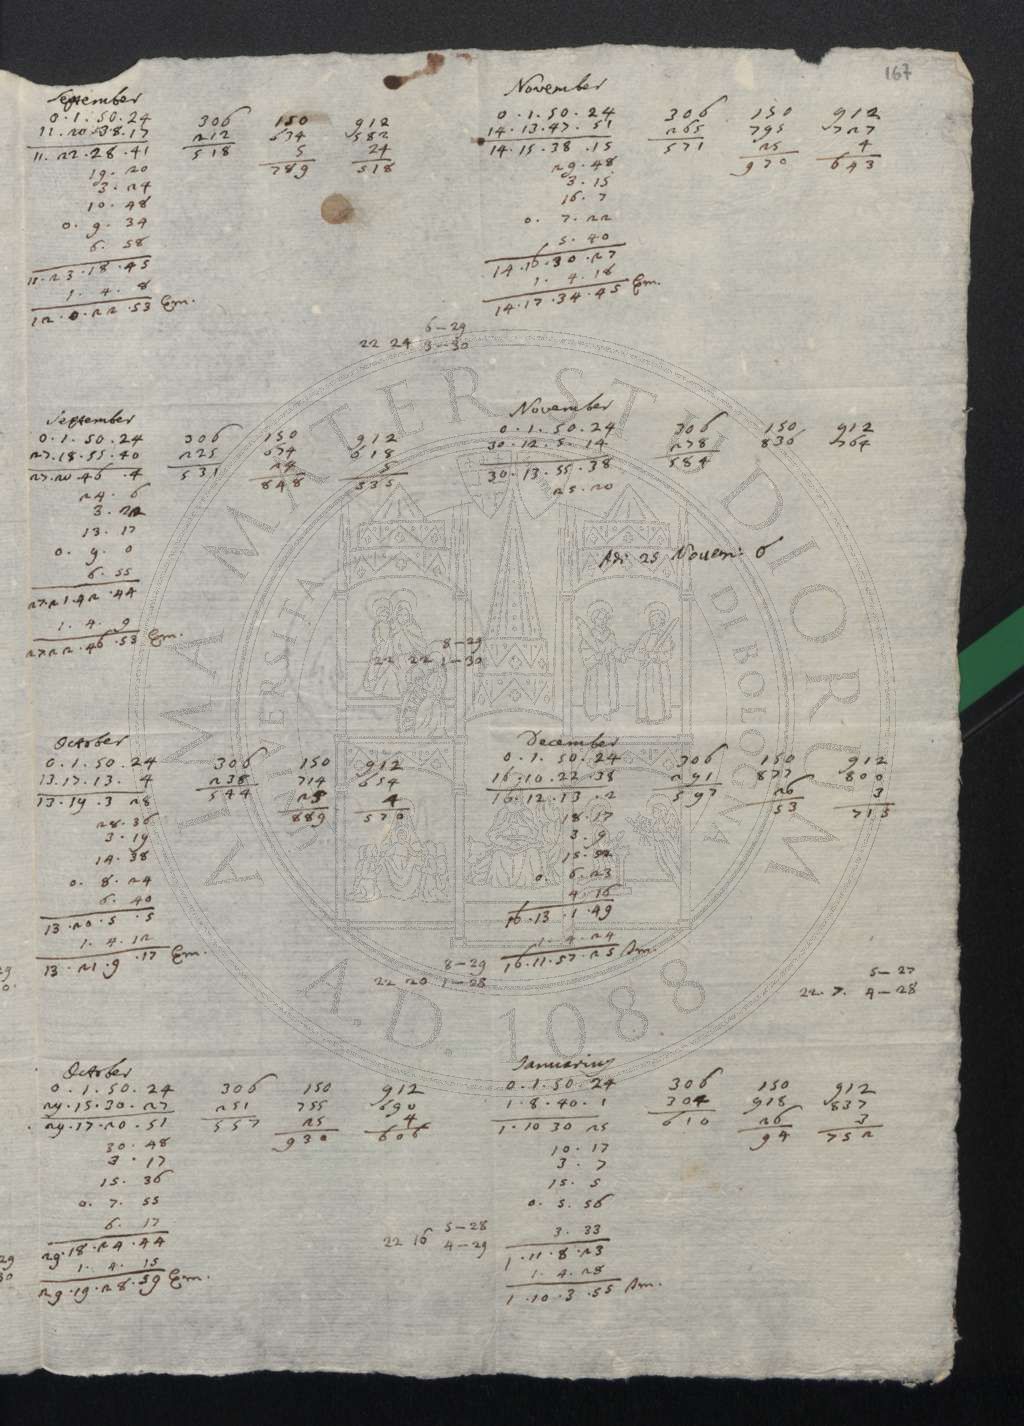 167
September
0.1.50.24 306 150 912
11.20.38.17 212 634 582
11.22.28.41 518 5 24
789 518
19.20
3.24
10.48
0.9.34
6.58
11.23.18.45
1.4.8
12.0.22.53 Em.
6-29
22 24 3-30
November
0.1.50.24 306 150 912
14.13.47.51 265 795 727
14.15.38.15 571 25 4
970 643
29.48
3.15
16.7
0.7.22
5.40
14.16.30.27
1.4.18
14.17.34.45 Em.
September
0.1.50.24 306 150 912
27.18.55.40 225 674 618
27.20.46.4 531 24 5
848 535
24.6
3.22
13.17
0.9.0
6.55
27.21.42.44
1.4.9
27.22.46.53 Em.
8-29
22 22 1-30
November
0.1.50.24 306 150 912
30.12.5.14 278 836 764
30.13.55.38 584
25.20
Adi 25 Novem: 6
October
0.1.50.24 306 150 912
13.17.13.4 238 714 654
13.19.3.28 544 25 4
889 570
28.36
3.19
14.38
0.8.24
6.40
13.20.5.5
1.4.12
13.21.9.17 Em.
8-29
22 20 1-28
December
0.1.50.24 306 150 912
16.10.22.38 291 877 800
16.12.13.2 597 26 3
53 715
18.17
3.9
15.52
0.6.23
4.16
16.13.1.49
1.4.24
16.11.57.25 Am.
5-27
22.7. 4-28
October
0.1.50.24 306 150 912
29.15.30.27 251 755 690
29.17.20.51 557 25 4
930 606
30.48
3.17
15.36
0.7.55
6.17
29.18.24.44
1.4.15
29.19.28.59 Em.
5-28
22 16 4-29
Januarius
0.1.50.24 306 150 912
1.8.40.1 304 918 837
1.10 30 25 610 26 3
94 752
10.17
3.7
15.5
0.5.56
3.33
1.11.8.23
1.4.28
1.10.3.55 Am.
29
0.
29
30
ALMA MATER STUDIORUM
UNIVERSITÀ DI BOLOGNA
A.D. 1088